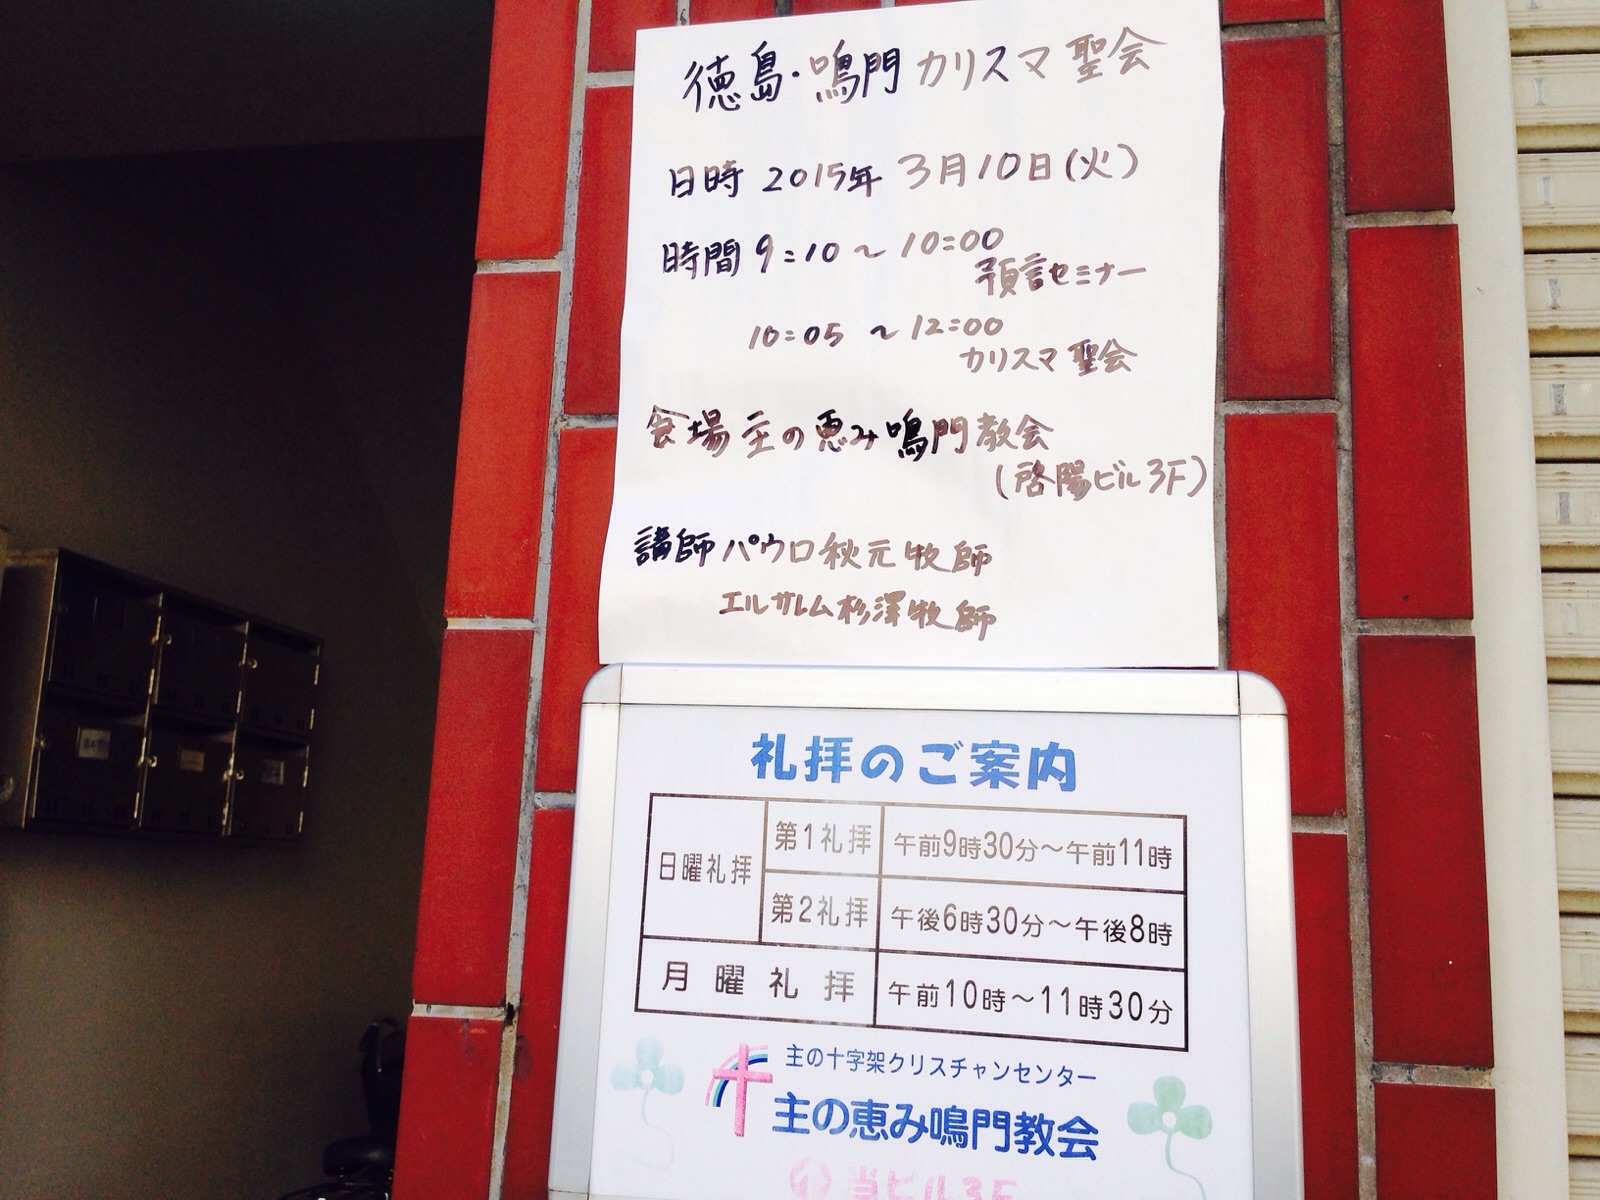 徳島・鳴門カリスマ聖会
日時 2015年 3月10日(火)
時間 9:10〜10:00
預言セミナー
10:05〜12:00
カリスマ聖会
会場 主の恵み鳴門教会
(啓陽ビル3F)
講師 パウロ秋元牧師
エルサレム杉澤牧師
礼拝のご案内
日曜礼拝 第1礼拝 午前9時30分〜午前11時
第2礼拝 午後6時30分〜午後8時
月曜礼拝 午前10時〜11時30分
主の十字架クリスチャンセンター
主の恵み鳴門教会
当ビル3F